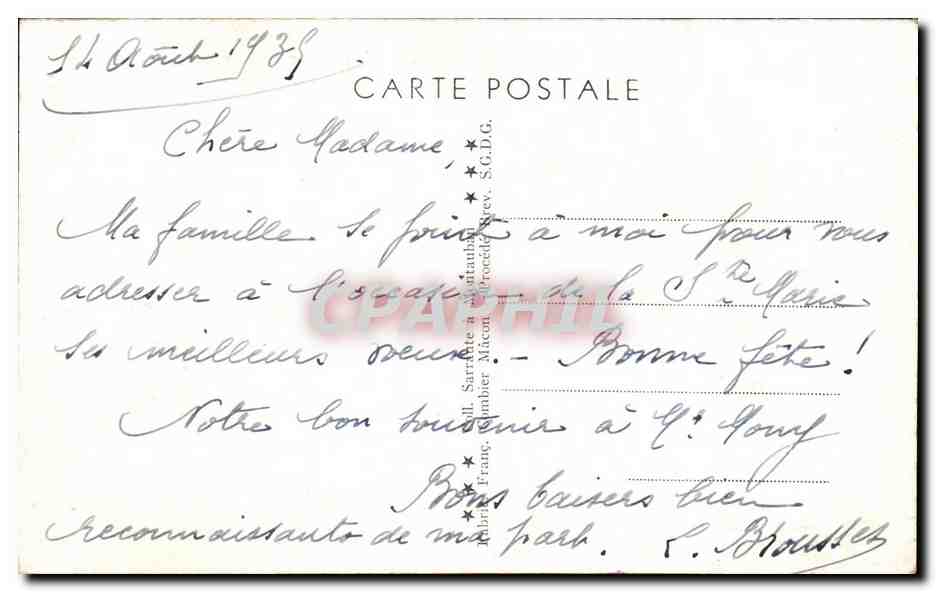 14 Août 1939
CARTE POSTALE
Chère Madame,
Ma famille se joint à moi pour vous
adresser à l'occasion de la Ste Marie
ses meilleurs voeux. - Bonne fête !
Notre bon souvenir à Mr Mouy
Bons baisers bien
reconnaissants de ma part. L. Brousses
Coll. Sarrante à Montauban
Fabric. Franç. Combier Mâcon Procédé Brev. S.G.D.G.
CPAPHIL